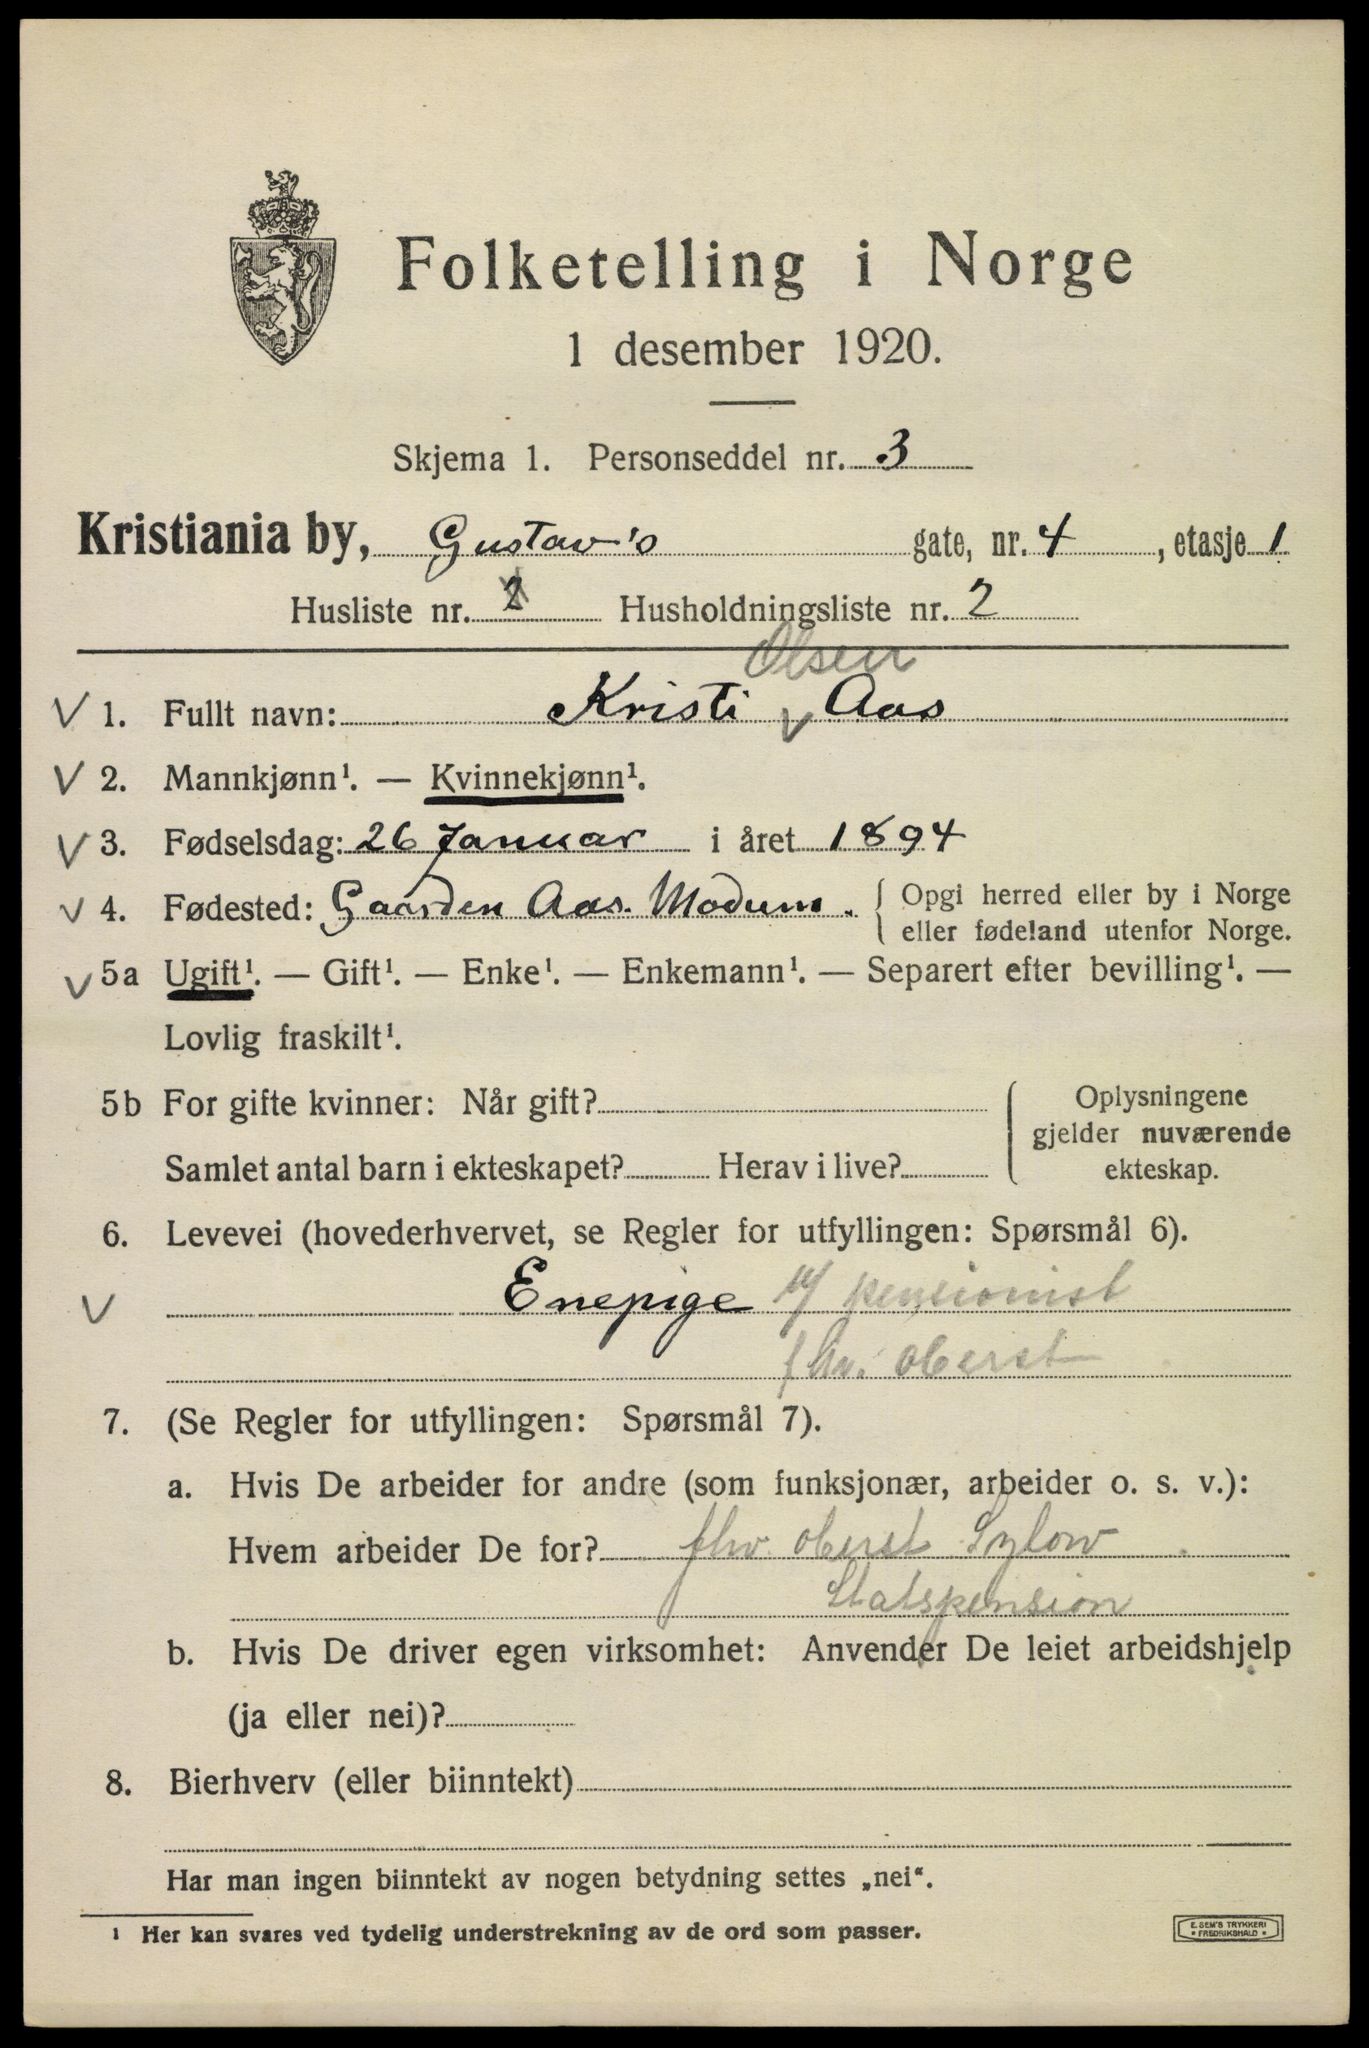 Folketelling i Norge
1 desember 1920.
Skjema 1. Personseddel nr. 3
Kristiania by, Gustav's gate, nr. 4, etasje 1
Husliste nr. 2 Husholdningsliste nr. 2
Olsen
V 1. Fullt navn: Kristi v Aas
V 2. Mannkjønn¹. — Kvinnekjønn¹.
V 3. Fødselsdag: 26 Januar i året 1894
V 4. Fødested: Gaarden Aas. Modum. { Opgi herred eller by i Norge
eller fødeland utenfor Norge.
V 5a Ugift¹. — Gift¹. — Enke¹. — Enkemann¹. — Separert efter bevilling¹. —
Lovlig fraskilt¹.
5b For gifte kvinner: Når gift? Oplysningene
gjelder nuværende
Samlet antal barn i ekteskapet? Herav i live? ekteskap.
6. Levevei (hovederhvervet, se Regler for utfyllingen: Spørsmål 6).
V Enepige pensionist
fhv. oberst
7. (Se Regler for utfyllingen: Spørsmål 7).
a. Hvis De arbeider for andre (som funksjonær, arbeider o. s. v.):
Hvem arbeider De for? fhv oberst Sylow
Statspension
b. Hvis De driver egen virksomhet: Anvender De leiet arbeidshjelp
(ja eller nei)?
8. Bierhverv (eller biinntekt)
Har man ingen biinntekt av nogen betydning settes „nei“.
¹ Her kan svares ved tydelig understrekning av de ord som passer.
E. SEM'S TRYKKERI
• FREDRIKSHALD •